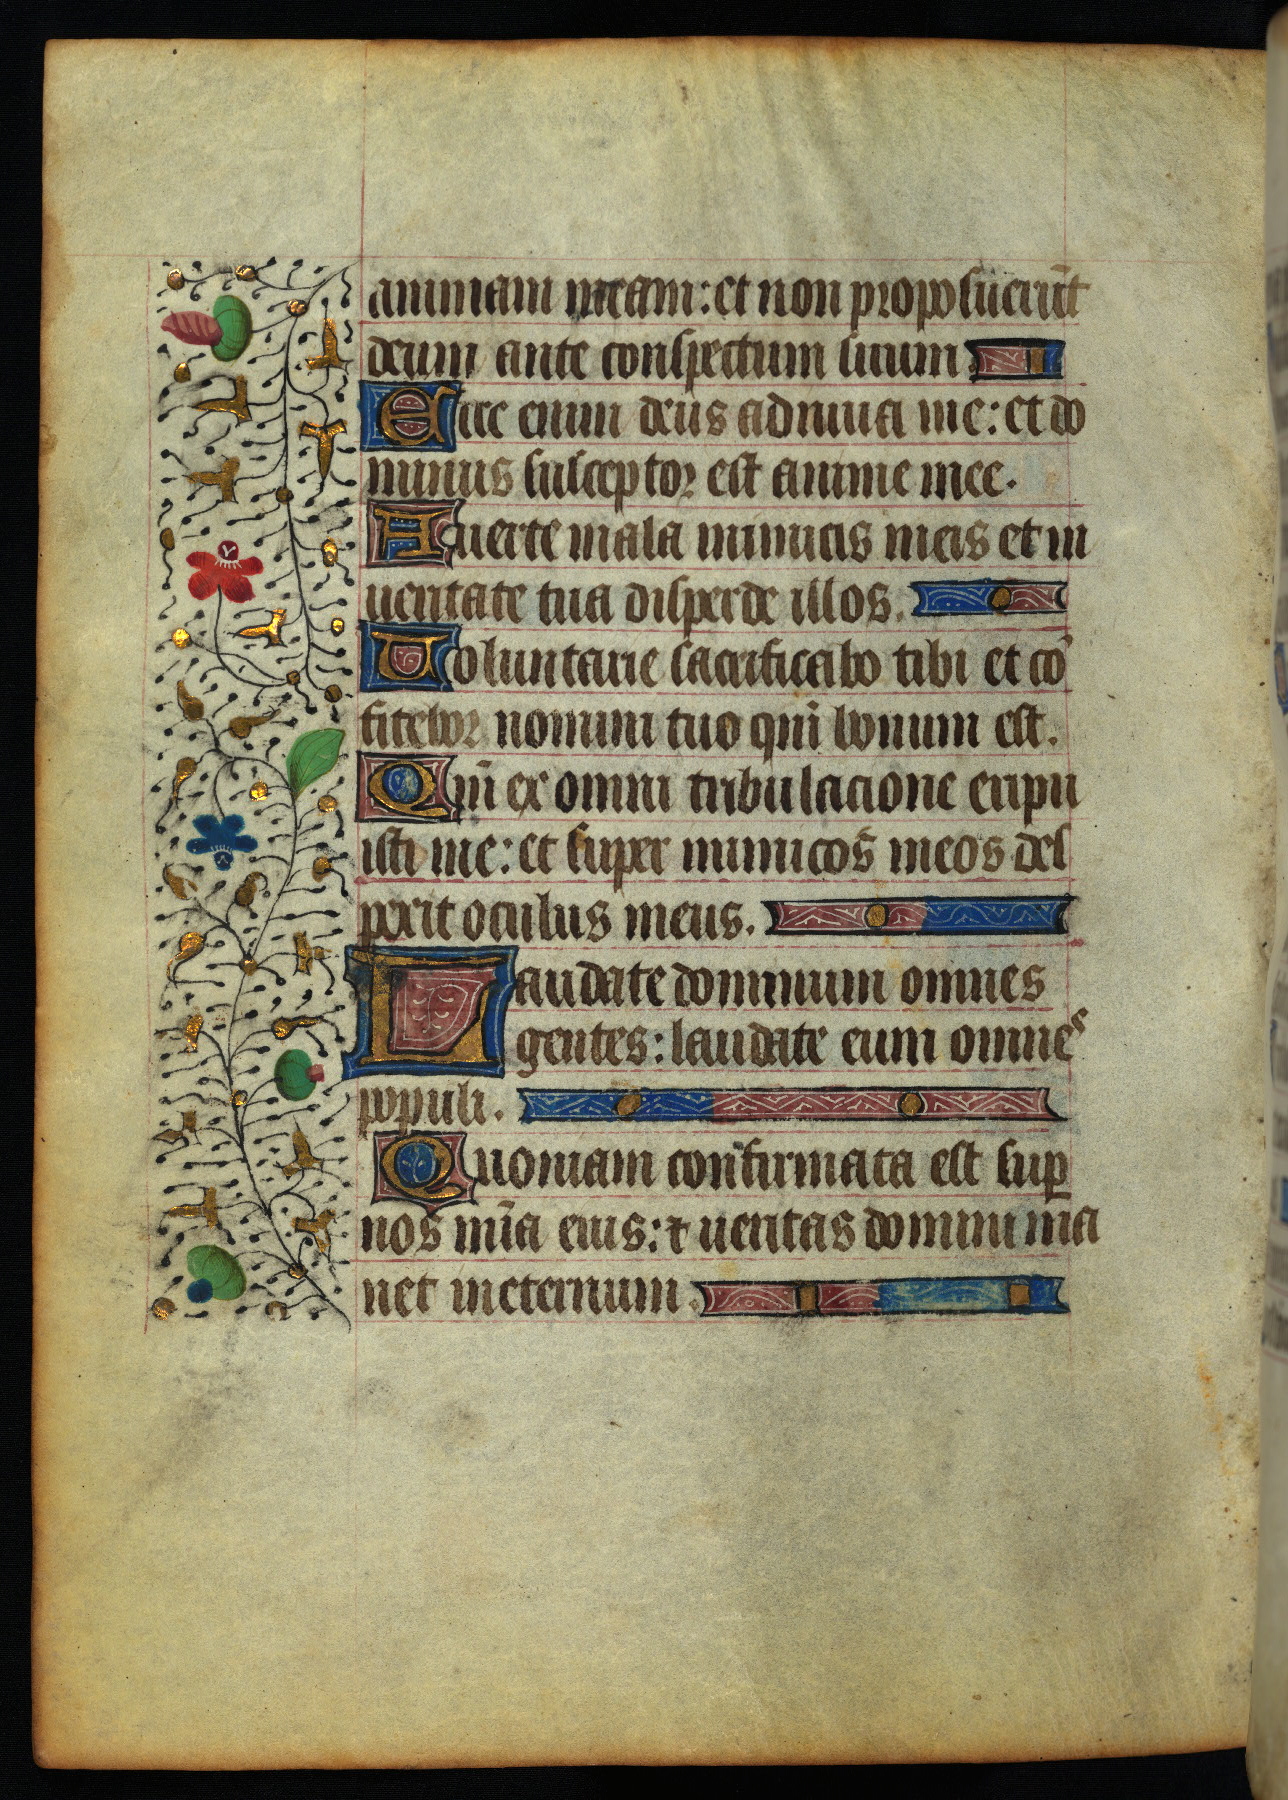 animam meam: et non proposuerūt
deum ante conspectum suum
Ecce enim deus adiuua me: et do
minus susceptor est anime mee.
Auerte mala inimicis meis et in
ueritate tua disperde illos.
Uoluntarie sacrificabo tibi et cō
fitebor nomini tuo qm̄ bonum est.
Qm̄ ex omni tribulacione eripu
isti me: et super inimicos meos des
perit oculus meus.
Laudate dominum omnes
gentes: laudate eum omnes
populi.
Quoniam confirmata est suꝑ
nos mīa eius: ⁊ ueritas domini ma
net ineternum.